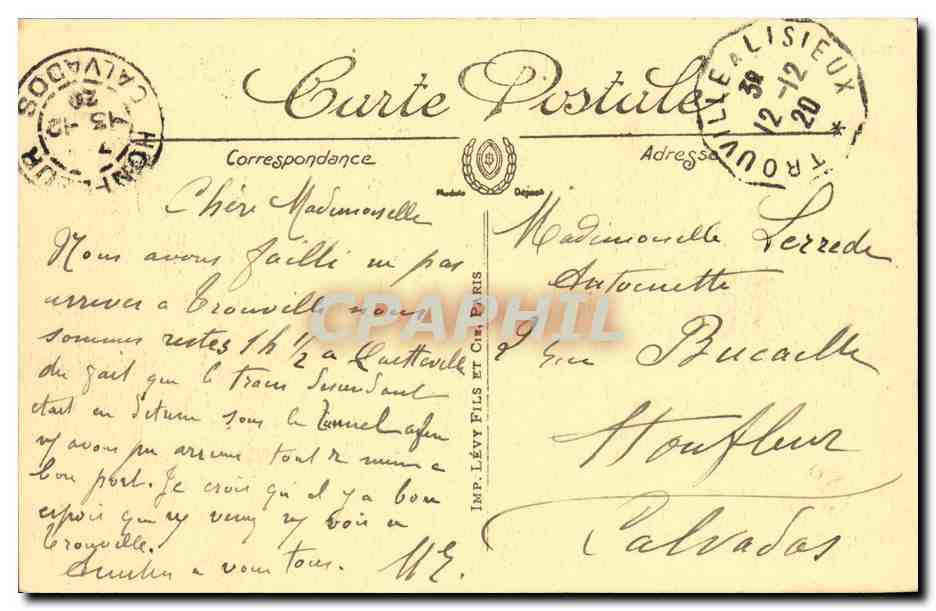 Carte Postale
TROUVILLE A LISIEUX
3E
12 -12
20
HONFLEUR
CALVADOS
13 -12
20
Correspondance
Adresse
Modèle Déposé
Chère Mademoiselle
Nous avons failli ne pas
arriver a Trouville nous
sommes restes 1h 1/2 a Quetteville
du fait que le train descendant
etait en sous le Tunnel
avons pu arriver tout de meme a
bon port. Je crois qu'il y a bon
espoir que
Trouville.
a vous tous. ME.
Mademoiselle Lerrede
Antoinette
2 Rue Bucaille
Honfleur
Calvados
IMP. LÉVY FILS ET CIE, PARIS
CPAPHIL